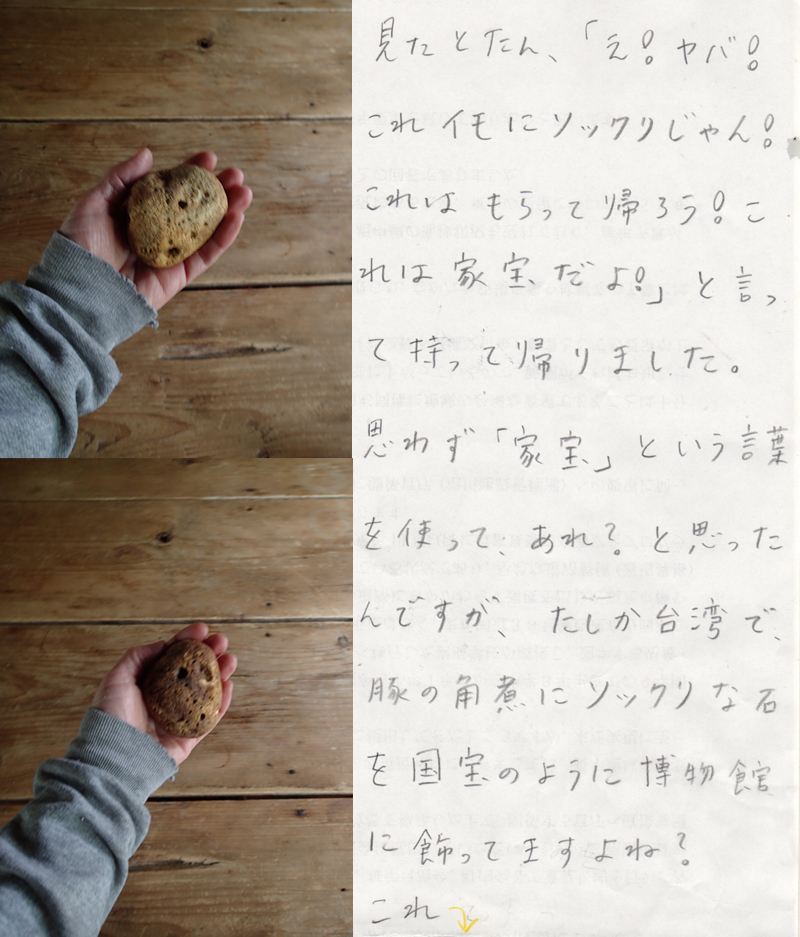 見たとたん、「え!ヤバ!
これイモにソックリじゃん!
これはもらって帰ろう!こ
れは家宝だよ!」と言っ
て持って帰りました。
思わず「家宝」という言葉
を使って、あれ?と思った
んですが、たしか台湾で、
豚の角煮にソックリな石
を国宝のように博物館
に飾ってますよね?
これ